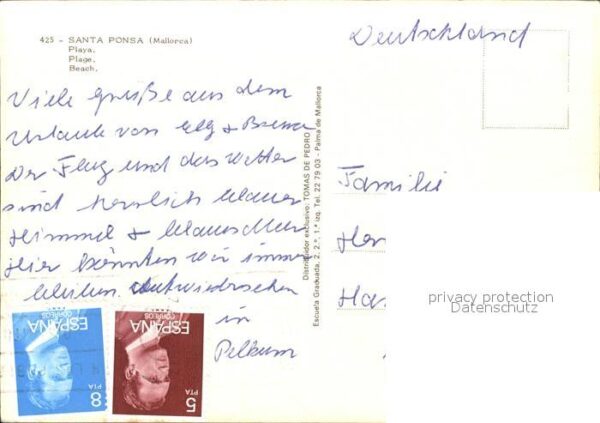 425 - SANTA PONSA (Mallorca)
Playa.
Plage.
Beach.
Viele Grüße aus dem
Urlaub von Elly &
Der Flug und das Wetter
sind herrlich blauer
Himmel &
Hier könnten wir immer
bleiben. Aufwiedersehen
in
Pelkum
ESPAÑA
CORREOS
8
PTA
ESPAÑA
CORREOS
5
PTA
Distribuidor exclusivo: TOMAS DE PEDRO
Escuela Graduada, 2, 2.º, 1.ª izq. Tel. 22 79 03 - Palma de Mallorca
Deutschland
Familie
Her
Ha
privacy protection
Datenschutz